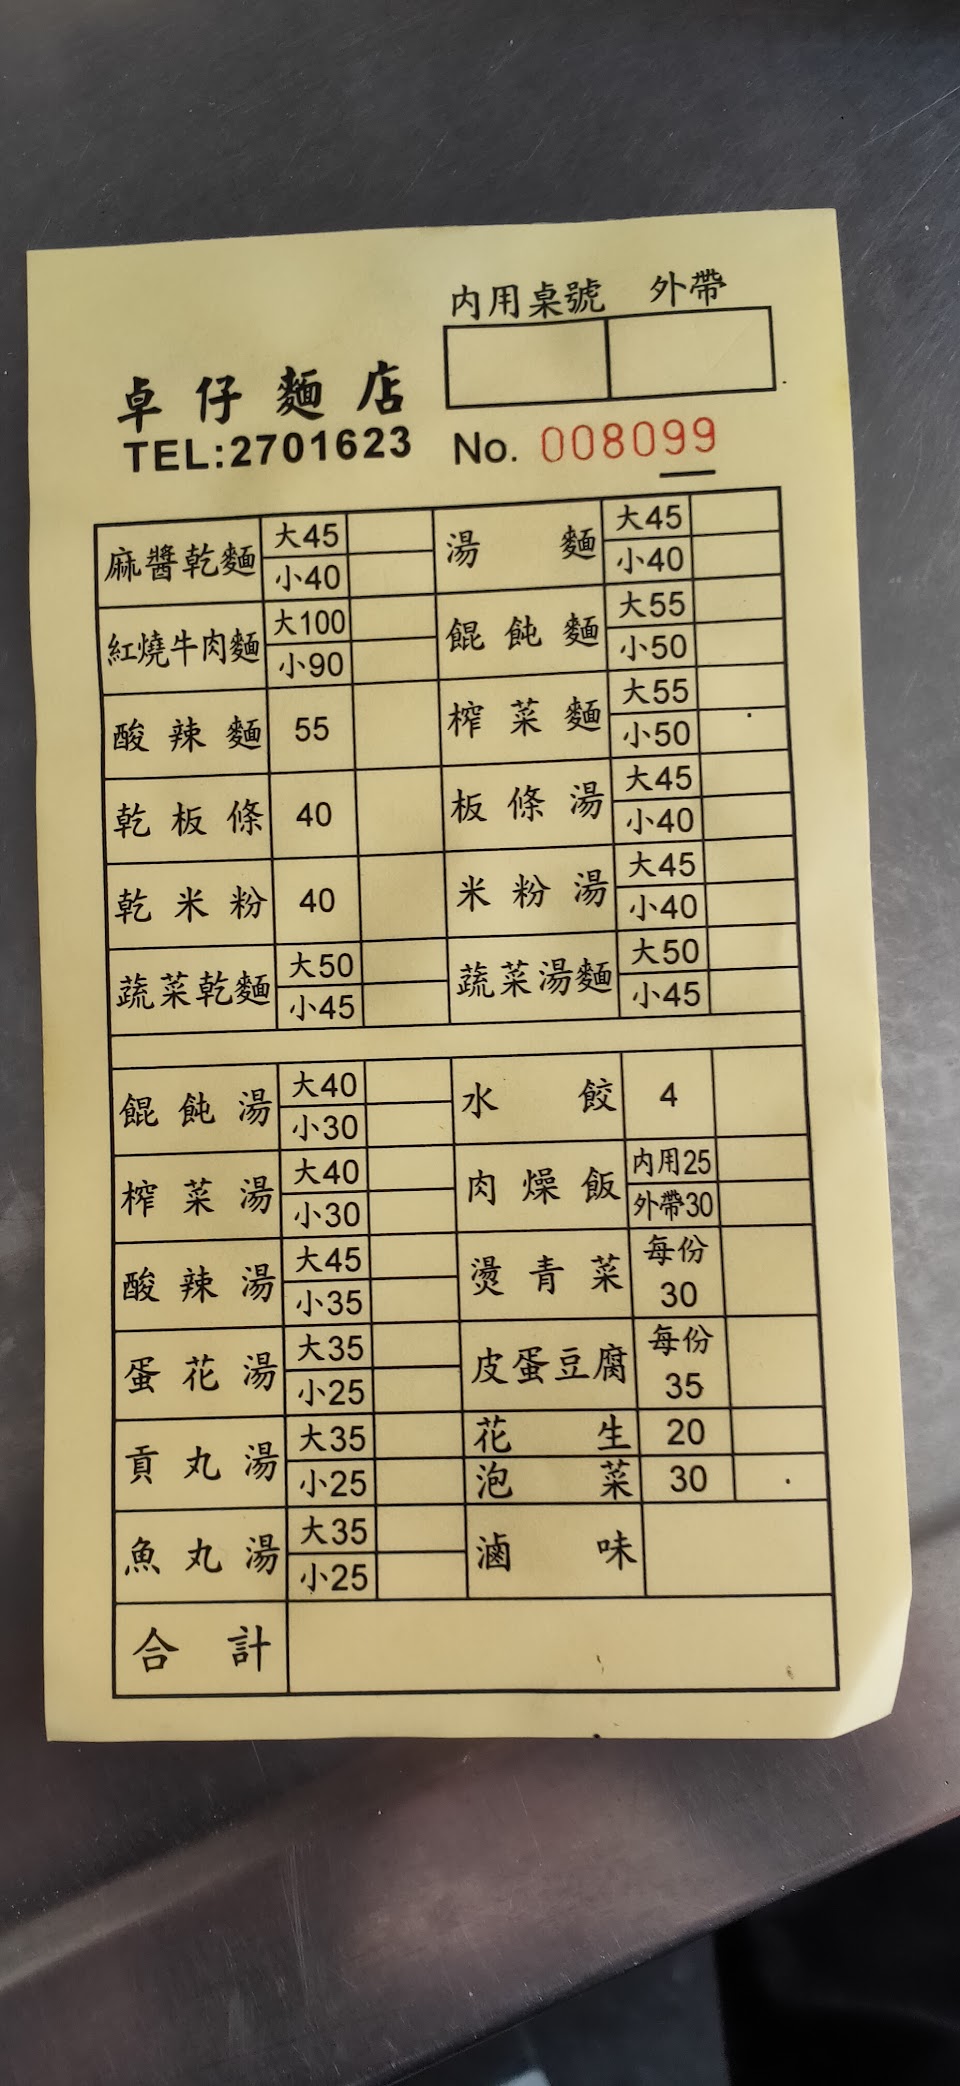 內用桌號 外帶
卓仔麵店
TEL:2701623 No. 008099
麻醬乾麵 大45 小40 湯麵 大45 小40
紅燒牛肉麵 大100 小90 餛飩麵 大55 小50
酸辣麵 55 榨菜麵 大55 小50
乾板條 40 板條湯 大45 小40
乾米粉 40 米粉湯 大45 小40
蔬菜乾麵 大50 小45 蔬菜湯麵 大50 小45
餛飩湯 大40 小30 水餃 4
榨菜湯 大40 小30 肉燥飯 內用25 外帶30
酸辣湯 大45 小35 燙青菜 每份30
蛋花湯 大35 小25 皮蛋豆腐 每份35
貢丸湯 大35 小25 花生 20
泡菜 30
魚丸湯 大35 小25 滷味
合計